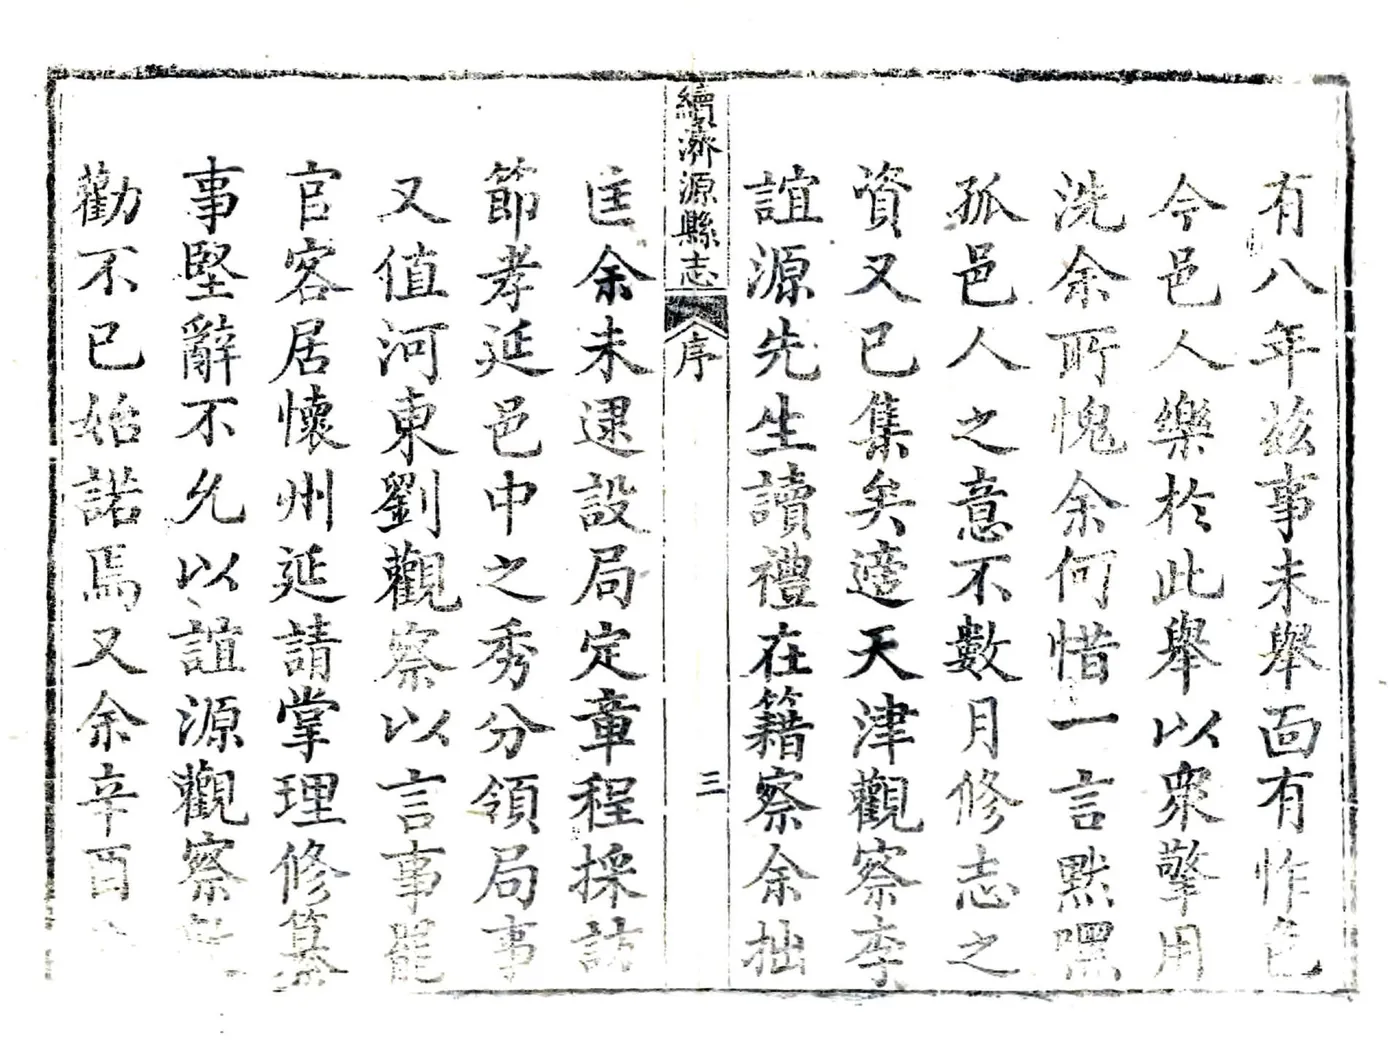 有八年茲事未舉面有怍色
今邑人樂於此舉以衆擎用
洗余所愧余何惜一言黙嘿
孤邑人之意不數月修志之
資又已集矣適天津觀察李
誼源先生讀禮在籍察余拙
續濟源縣志
序
三
匡余未逮設局定章程採訪
節孝延邑中之秀分領局事
又值河東劉觀察以言事罷
官客居懷州延請掌理修纂
事堅辭不允以誼源觀察
勸不已始諾焉又余辛酉